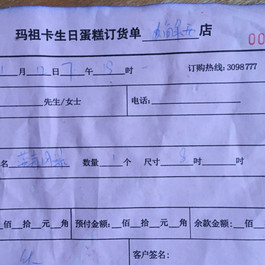 玛祖卡生日蛋糕订货单 店
00
月 7 午 时 订购热线: 3098777
先生/女士 电话
名 数量 1 个 尺寸 8 吋 吋
佰 拾 元 角 预付金额: 佰 拾 元 余款金额: 佰
客户签名: